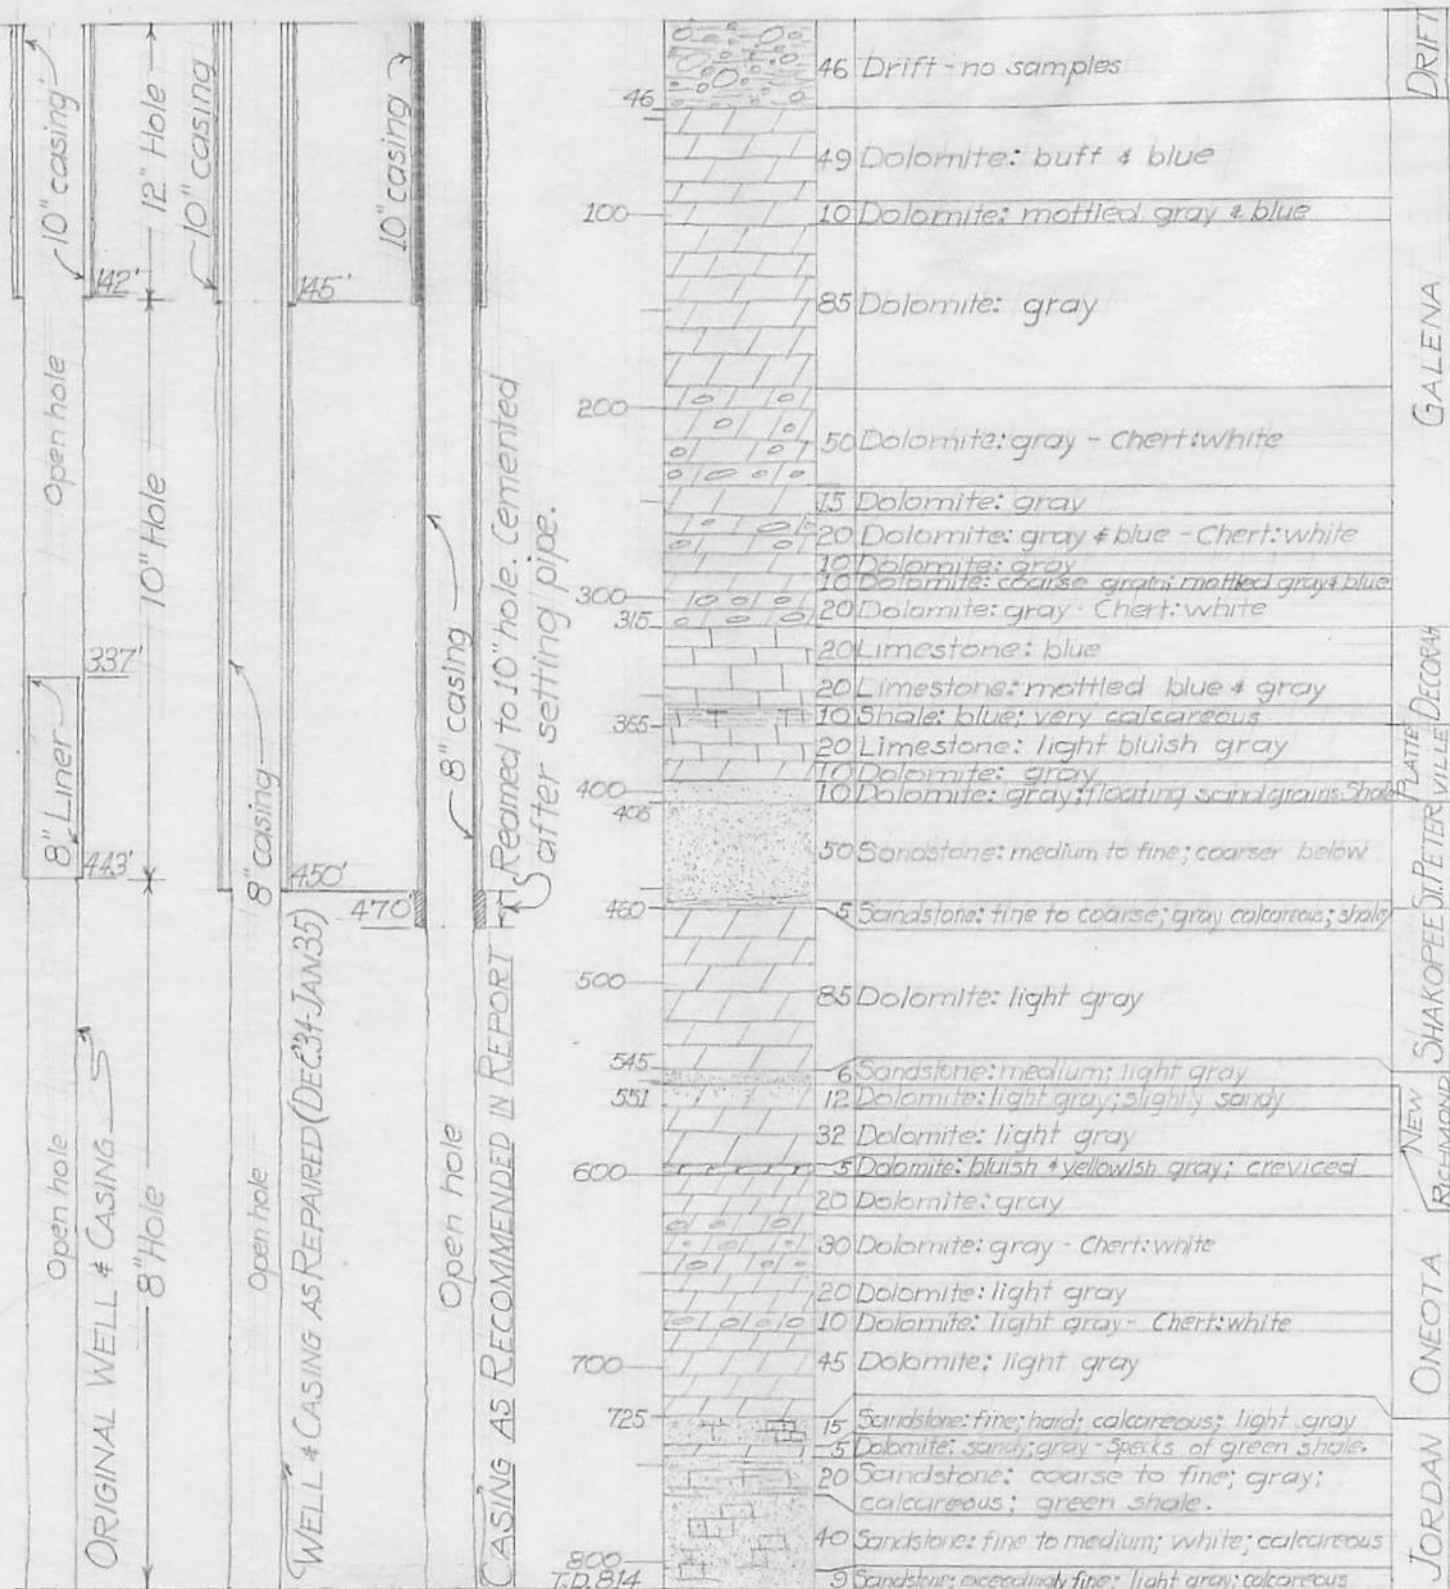 10" casing
142'
Open hole
337'
8" Liner
443'
Open hole
ORIGINAL WELL & CASING
12" Hole
10" Hole
8" Hole
10" casing
145'
8" casing
450'
Open hole
WELL & CASING AS REPAIRED (DEC.'34-JAN 35)
10" casing
8" casing
470'
Open hole
CASING AS RECOMMENDED IN REPORT
Reamed to 10" hole. Cemented
after setting pipe.
46
100
200
300
315
365
400
406
460
500
545
551
600
700
725
800
T.D. 814
46 Drift - no samples
49 Dolomite: buff & blue
10 Dolomite: mottled gray & blue
85 Dolomite: gray
50 Dolomite: gray - Chert: white
15 Dolomite: gray
20 Dolomite: gray & blue - Chert: white
10 Dolomite: gray
10 Dolomite: coarse grain; mottled gray & blue
20 Dolomite: gray - Chert: white
20 Limestone: blue
20 Limestone: mottled blue & gray
10 Shale: blue; very calcareous
20 Limestone: light bluish gray
10 Dolomite: gray
10 Dolomite: gray; floating sand grains. Shale
50 Sandstone: medium to fine; coarser below
5 Sandstone: fine to coarse; gray calcareous; shale
85 Dolomite: light gray
6 Sandstone: medium; light gray
12 Dolomite: light gray; slightly sandy
32 Dolomite: light gray
5 Dolomite: bluish & yellowish gray; creviced
20 Dolomite: gray
30 Dolomite: gray - Chert: white
20 Dolomite: light gray
10 Dolomite: light gray - Chert: white
45 Dolomite: light gray
15 Sandstone: fine; hard; calcareous; light gray
5 Dolomite: sandy; gray - Specks of green shale.
20 Sandstone: coarse to fine; gray;
calcareous; green shale.
40 Sandstone: fine to medium; white; calcareous
9 Sandstone: exceedingly fine; light gray; calcareous
DRIFT
GALENA
DECORAH
PLATTE
VILLE
ST. PETER
SHAKOPEE
NEW
RICHMOND
ONEOTA
JORDAN